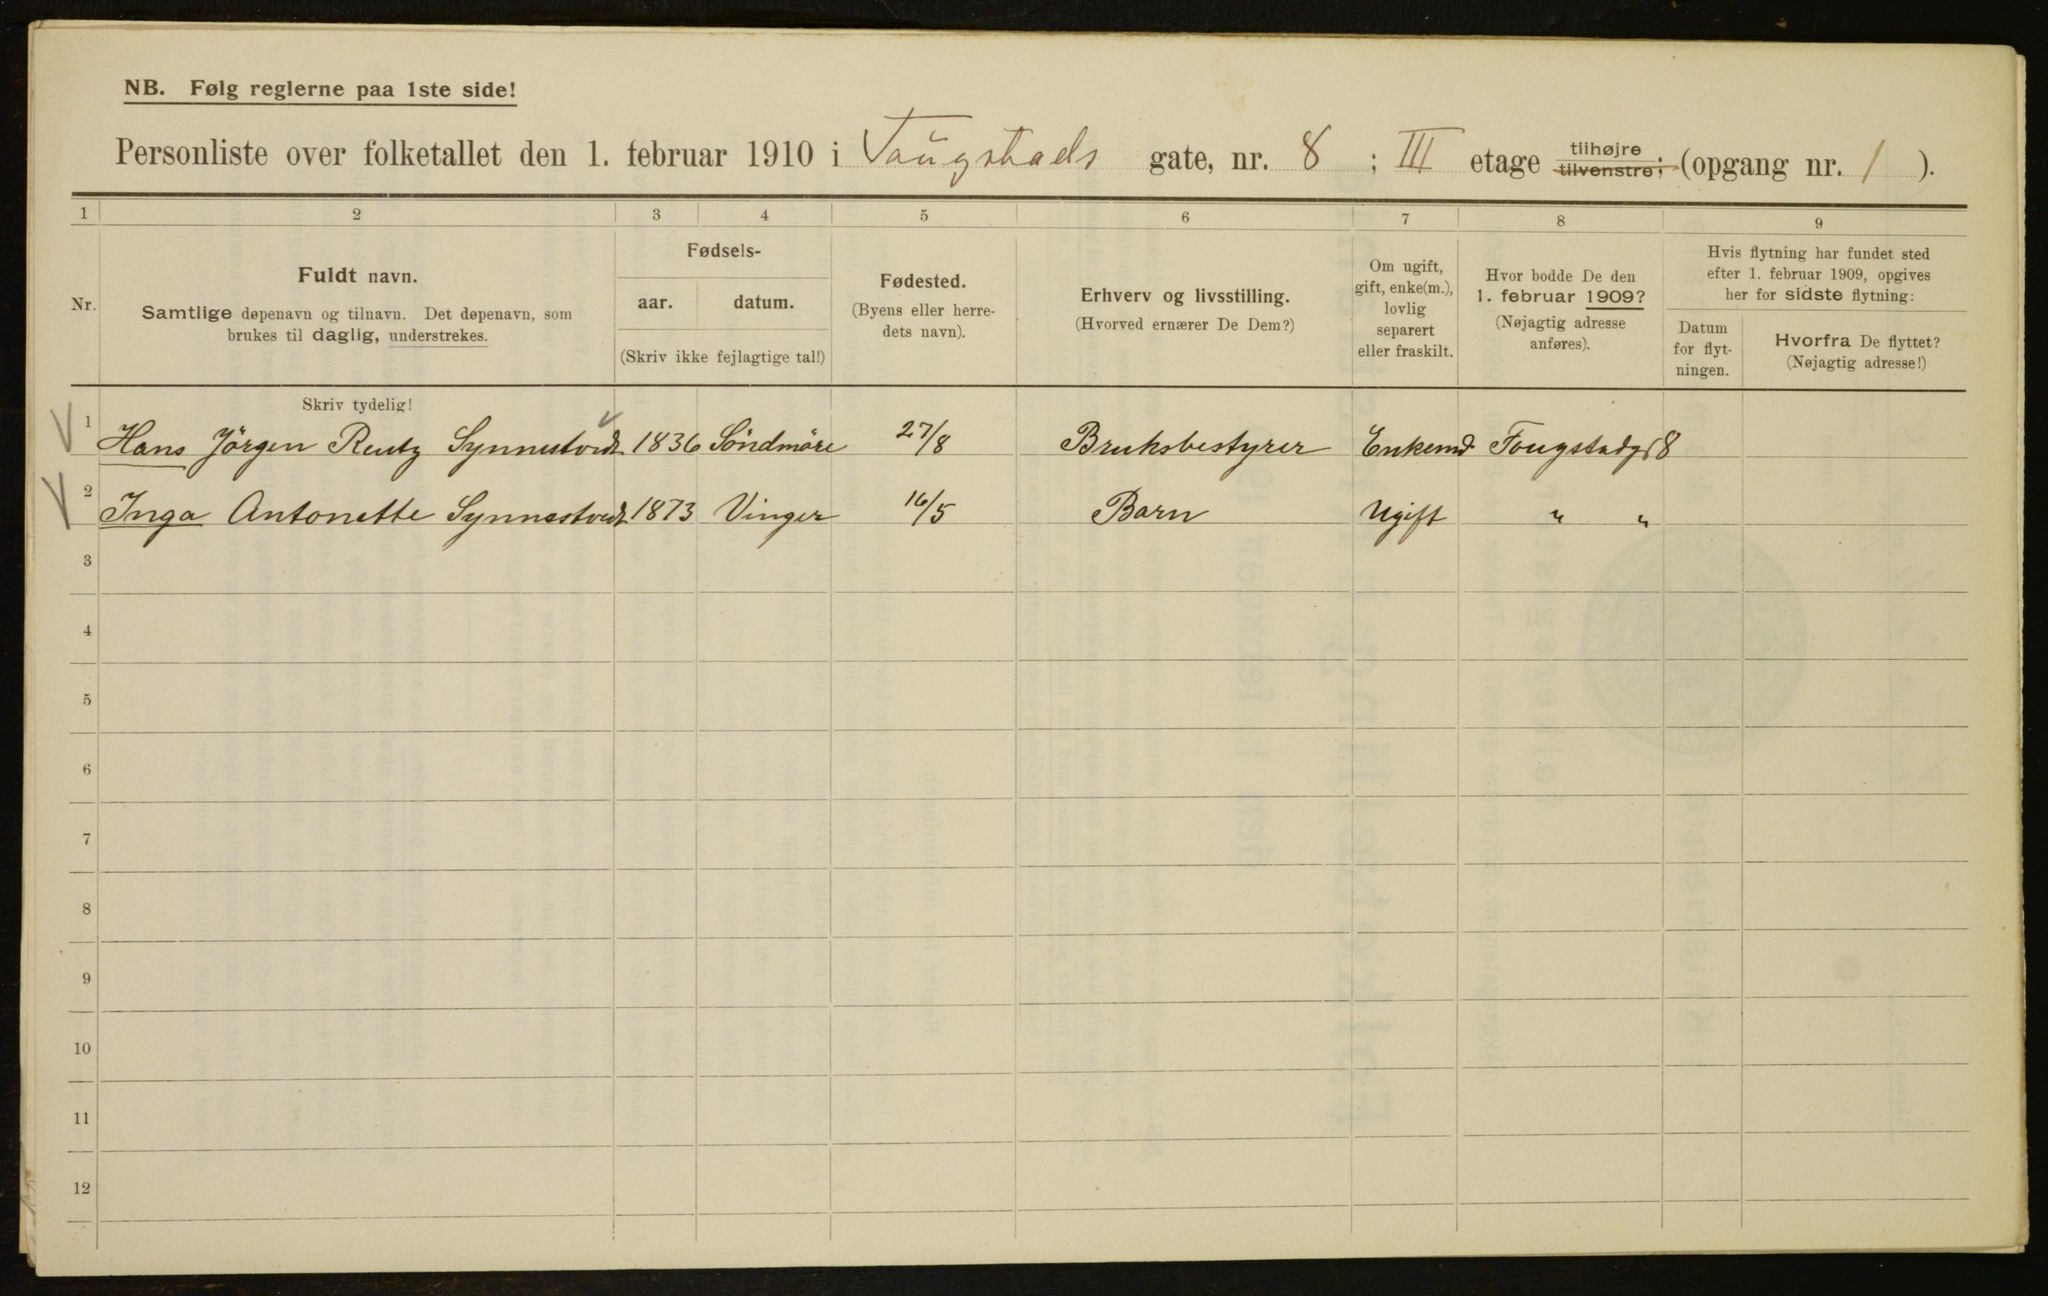 NB. Følg reglerne paa 1ste side!
Personliste over folketallet den 1. februar 1910 i Tougstads gate, nr. 8 ; III etage tilhøjre tilvenstre; (opgang nr. 1 ).
1 2 3 4 5 6 7 8 9
Nr.
Fuldt navn.
Samtlige døpenavn og tilnavn. Det døpenavn, som
brukes til daglig, understrekes.
Fødsels-
aar. datum.
(Skriv ikke fejlagtige tal!)
Fødested.
(Byens eller herre-
dets navn).
Erhverv og livsstilling.
(Hvorved ernærer De Dem?)
Om ugift,
gift, enke(m.),
lovlig
separert
eller fraskilt.
Hvor bodde De den
1. februar 1909?
(Nøjagtig adresse
anføres).
Hvis flytning har fundet sted
efter 1. februar 1909, opgives
her for sidste flytning:
Datum
for flyt-
ningen.
Hvorfra De flyttet?
(Nøjagtig adresse!)
Skriv tydelig!
1 Hans Jörgen Reutz Synnestvedt 1836 Söndmöre 27/8 Bruksbestyrer Enkemd Tougstadgt 8
2 Inga Antonette Synnestvedt 1873 Vinger 16/5 Barn Ugift " "
3
4
5
6
7
8
9
10
11
12